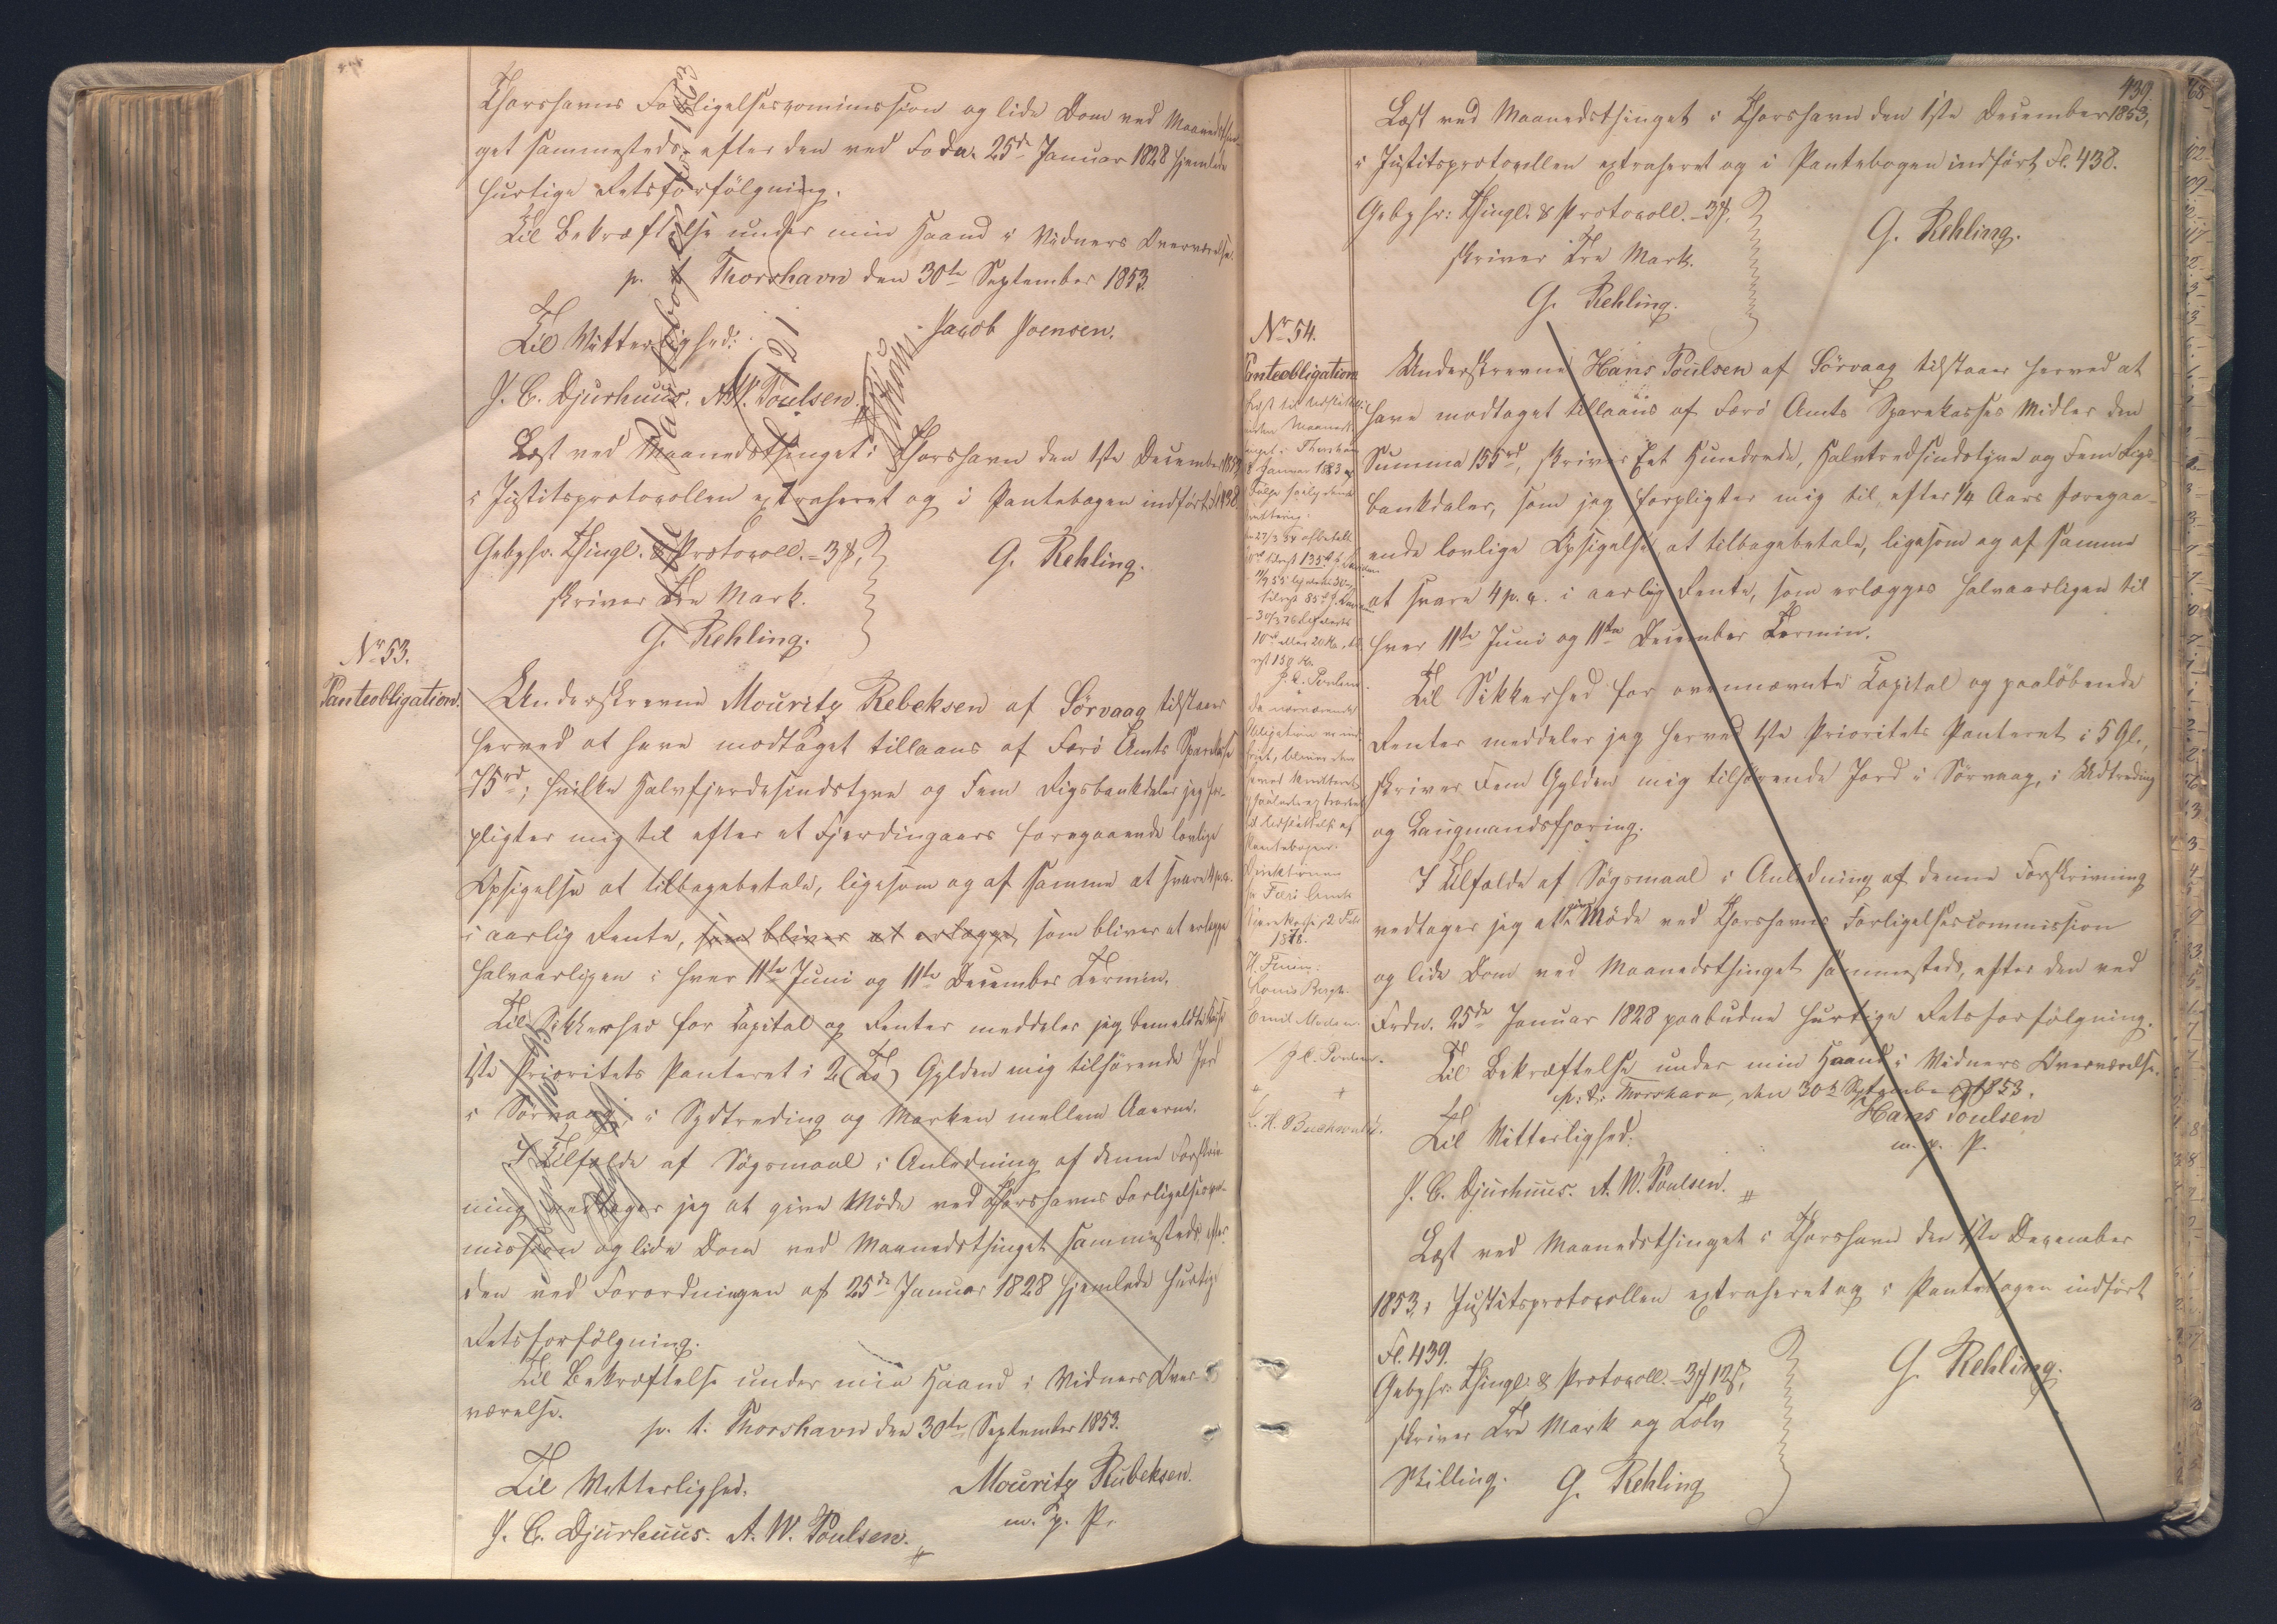 Thorshavns Forligelsescommission og lide Dom ved Maanedsthin-
get sammesteds efter den ved Fodn. 25de Januar 1828 hjemlede
hurtige Retsforfölgning.
Til Bekræftelse under min Haand i Vidners Overværelse.
p. t. Thorshavn den 30te September 1853.
Jacob Joensen.
Til Vitterlighed:
J. C. Djurhuus. A. W. Poulsen.
Læst ved Maanedsthinget i Thorshavn den 1ste December 1853
i Justitsprotocollen extraheret og i Pantebogen indfört Fl. 438.
Gebyhr. Thingl. & Protocoll. = 3 ꝶ,
skriver Tre Mark.
G. Rehling.
G. Rehling.
No 53.
Panteobligation.
Underskrevne Mouritz Rebeksen af Sörvaag tilstaaer
herved at have modtaget tillaans af Færö Amts Sparekasse
75rd; hvilke Halvfjerdesindstyve og Fem Rigsbankdaler jeg for-
pligter mig til efter et Fjerdingaars foregaaende lovlige
Opsigelse at tilbagebetale, ligesom og af samme at svare 4 p. c.
i aarlig Rente, som bliver at erlægge, som bliver at erlægge
halvaarligen i hver 11te Juni og 11te December Termin.
Til Sikkerhed for Capital og Renter meddeler jeg bemeldte Kasse
1ste Prioritets Panteret i 2 (To) Gylden mig tilhörende Jord
i Sörvaag, i Sydtreding og Marken mellem Aaerne.
I Tilfælde af Sögsmaal i Anledning af denne Forskriv-
ning vedtager jeg at give Möde ved Thorshavns Forligelsescom-
mission og lide Dom ved Maanedsthinget sammesteds, efter
den ved Forordningen af 25de Januar 1828 hjemlede hurtige
Retsforfölgning.
Til Bekræftelse under min Haand i Vidners Over-
værelse.
p. t. Thorshavn den 30te September 1853.
Til Vitterlighed.
Mouritz Rubeksen.
m. p. P.
J. C. Djurhuus. A. W. Poulsen.
439.
Læst ved Maanedsthinget i Thorshavn den 1ste December 1853,
i Justitsprotocollen extraheret og i Pantebogen indfört Fl. 438.
Gebyhr: Thingl. & Protocoll. = 3 ꝶ,
skriver Tre Mark.
G. Rehling.
G. Rehling.
No 54.
Panteobligation
Underskrevne Hans Poulsen af Sörvaag tilstaaer herved at
have modtaget tillaans af Færö Amts Sparekasses Midler den
Summa 155rd, skriver Eet Hundrede, Halvtredsindstyve og Fem Rigs-
bankdaler, som jeg forpligter mig til, efter 1/4 Aars foregaa-
ende lovlige Opsigelse at tilbagebetale, ligesom og af samme
at svare 4 p. c. i aarlig Rente, som erlægges halvaarligen til
hver 11te Juni og 11te December Termin.
Til Sikkerhed for ovennævnte Capital og paalöbende
Renter meddeler jeg herved 1ste Prioritets Panteret i 5 Gl.,
skriver Fem Gylden mig tilhörende Jord i Sörvaag, i Udtreding
og Laugmandsfjoring.
I Tilfælde af Sögsmaal i Anledning af denne Forskrivning
vedtager jeg at give Möde ved Thorshavns Forligelsescommission
og lide Dom ved Maanedsthinget sammesteds, efter den ved
Frdn. 25de Januar 1828 paabudne hurtige Retsforfölgning.
Til Bekræftelse under min Haand i Vidners Overværelse.
p: t: Thorshavn, den 30te September 1853.
Hans Poulsen
m. p. P.
Til Vitterlighed:
J. C. Djurhuus. A. W. Poulsen.
Læst ved Maanedsthinget i Thorshavn den 1ste December
1853, i Justitsprotocollen extraheret og i Pantebogen indfört
Fl. 439.
Gebyhr: Thingl: & Protocoll. = 3 ꝶ 12 ß,
skriver Tre Mark og Tolv
Skilling.
G. Rehling
G. Rehling.